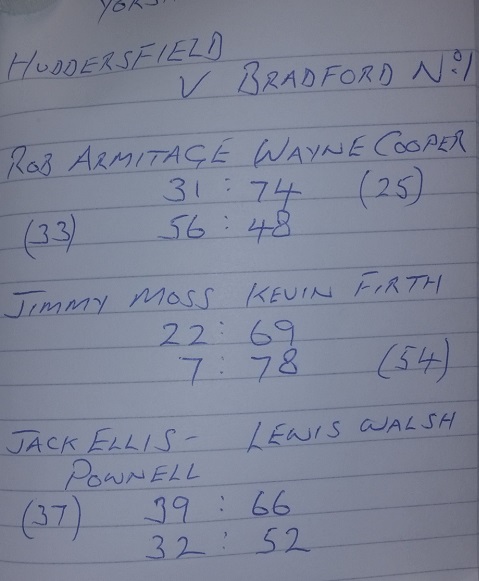 HUDDERSFIELD
V BRADFORD No.1
ROB ARMITAGE WAYNE COOPER
31 : 74 (25)
(33) 56 : 48
JIMMY MOSS KEVIN FIRTH
22 : 69
7 : 78 (54)
JACK ELLIS- LEWIS WALSH
POWNELL
(37) 39 : 66
32 : 52